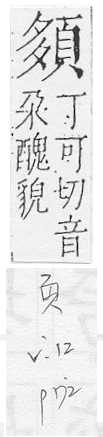 ⿰多頁
丁可切音
朶醜貌
頁
v.12